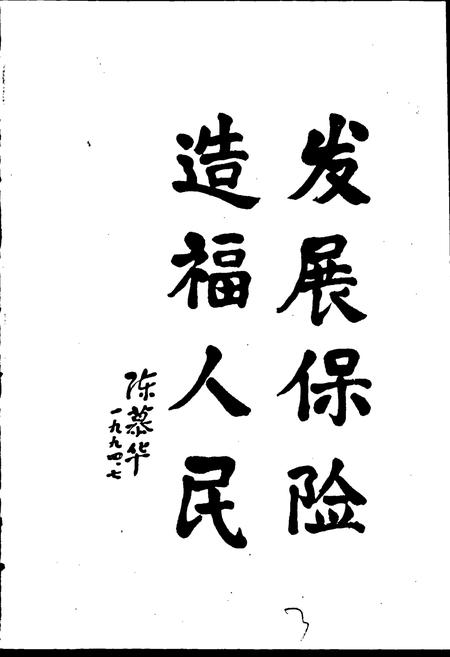 发展保险
造福人民
陈慕华
一九九四.七